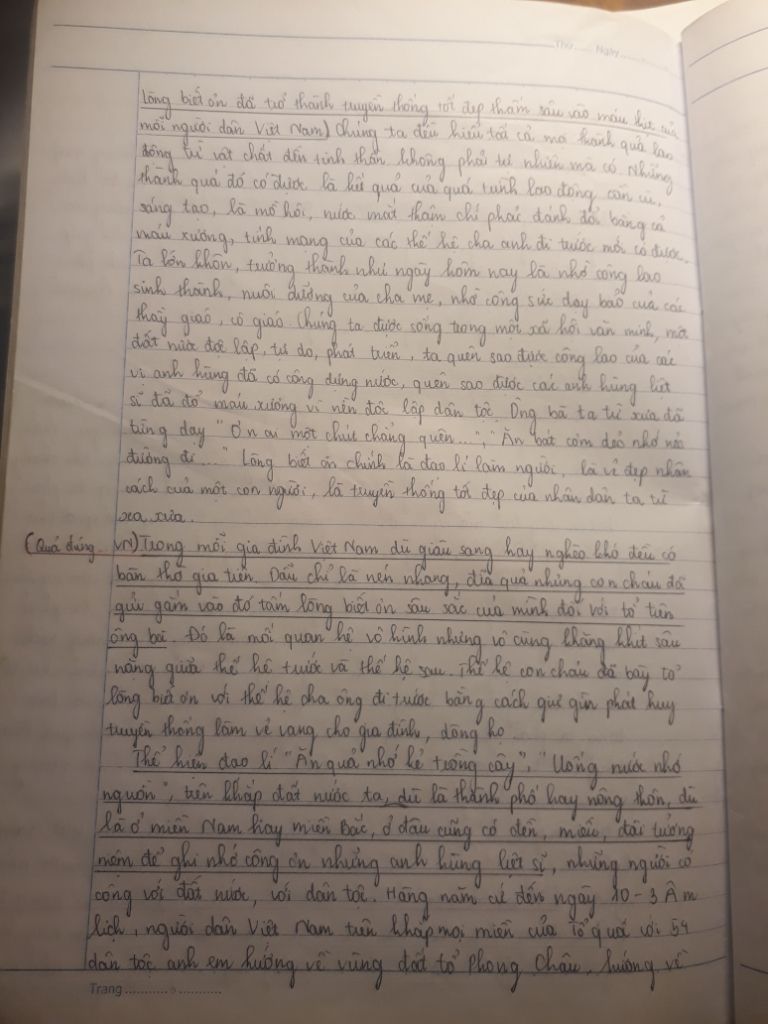 Thứ ...... Ngày ......
Lòng biết ơn đã trở thành truyền thống tốt đẹp thấm sâu vào máu thịt của
mỗi người dân Việt Nam) Chúng ta đều hiểu tất cả mọi thành quả lao
động từ vật chất đến tinh thần không phải tự nhiên mà có. Những
thành quả đó có được là kết quả của quá trình lao động cần cù,
sáng tạo, là mồ hôi, nước mắt thậm chí phải đánh đổi bằng cả
máu xương, tính mạng của các thế hệ cha anh đi trước mới có được.
Ta lớn khôn, trưởng thành như ngày hôm nay là nhờ công lao
sinh thành, nuôi dưỡng của cha mẹ, nhờ công sức dạy bảo của các
thầy giáo, cô giáo. Chúng ta được sống trong một xã hội văn minh, một
đất nước độc lập, tự do, phát triển, ta quên sao được công lao của các
vị anh hùng đã có công dựng nước, quên sao được các anh hùng liệt
sĩ đã đổ máu xương vì nền độc lập dân tộc. Ông bà ta từ xưa đã
từng dạy "Ơn ai một chút chẳng quên....", "Ăn bát cơm dẻo nhớ nẻo
đường đi...." Lòng biết ơn chính là đạo lí làm người, là vẻ đẹp nhân
cách của một con người, là truyền thống tốt đẹp của nhân dân ta từ
xa xưa.
(Quả đúng... VN) Trong mỗi gia đình Việt Nam dù giàu sang hay nghèo khó đều có
bàn thờ gia tiên. Dẫu chỉ là nén nhang, đĩa quả nhưng con cháu đã
gửi gắm vào đó tấm lòng biết ơn sâu sắc của mình đối với tổ tiên
ông bà. Đó là mối quan hệ vô hình nhưng vô cùng khăng khít sâu
nặng giữa thế hệ trước và thế hệ sau. Thế hệ con cháu đã bày tỏ
lòng biết ơn với thế hệ cha ông đi trước bằng cách giữ gìn phát huy
truyền thống làm vẻ vang cho gia đình, dòng họ
Thể hiện đạo lí "Ăn quả nhớ kẻ trồng cây", "Uống nước nhớ
nguồn", trên khắp đất nước ta, dù là thành phố hay nông thôn, dù
là ở miền Nam hay miền Bắc, ở đâu cũng có đền, miếu, đài tưởng
niệm để ghi nhớ công ơn những anh hùng liệt sĩ, những người có
công với đất nước, với dân tộc. Hàng năm cứ đến ngày 10-3 Âm
lịch, người dân Việt Nam trên khắp mọi miền của Tổ quốc với 54
dân tộc anh em hướng về vùng đất tổ Phong Châu, hướng về
Trang ......................